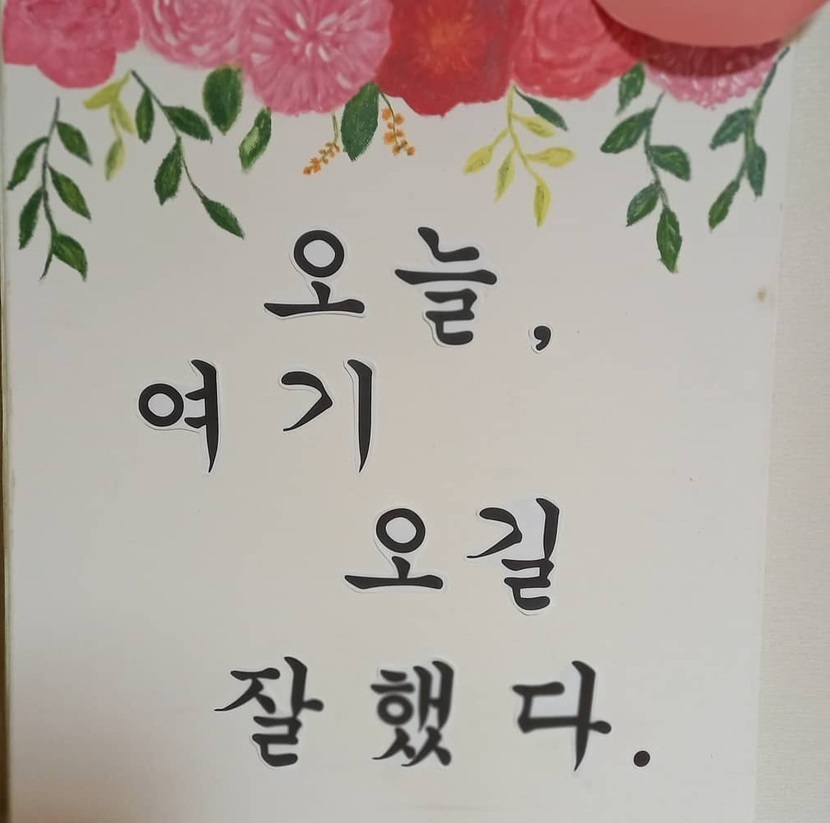 오늘,
여기
오길
잘했다.